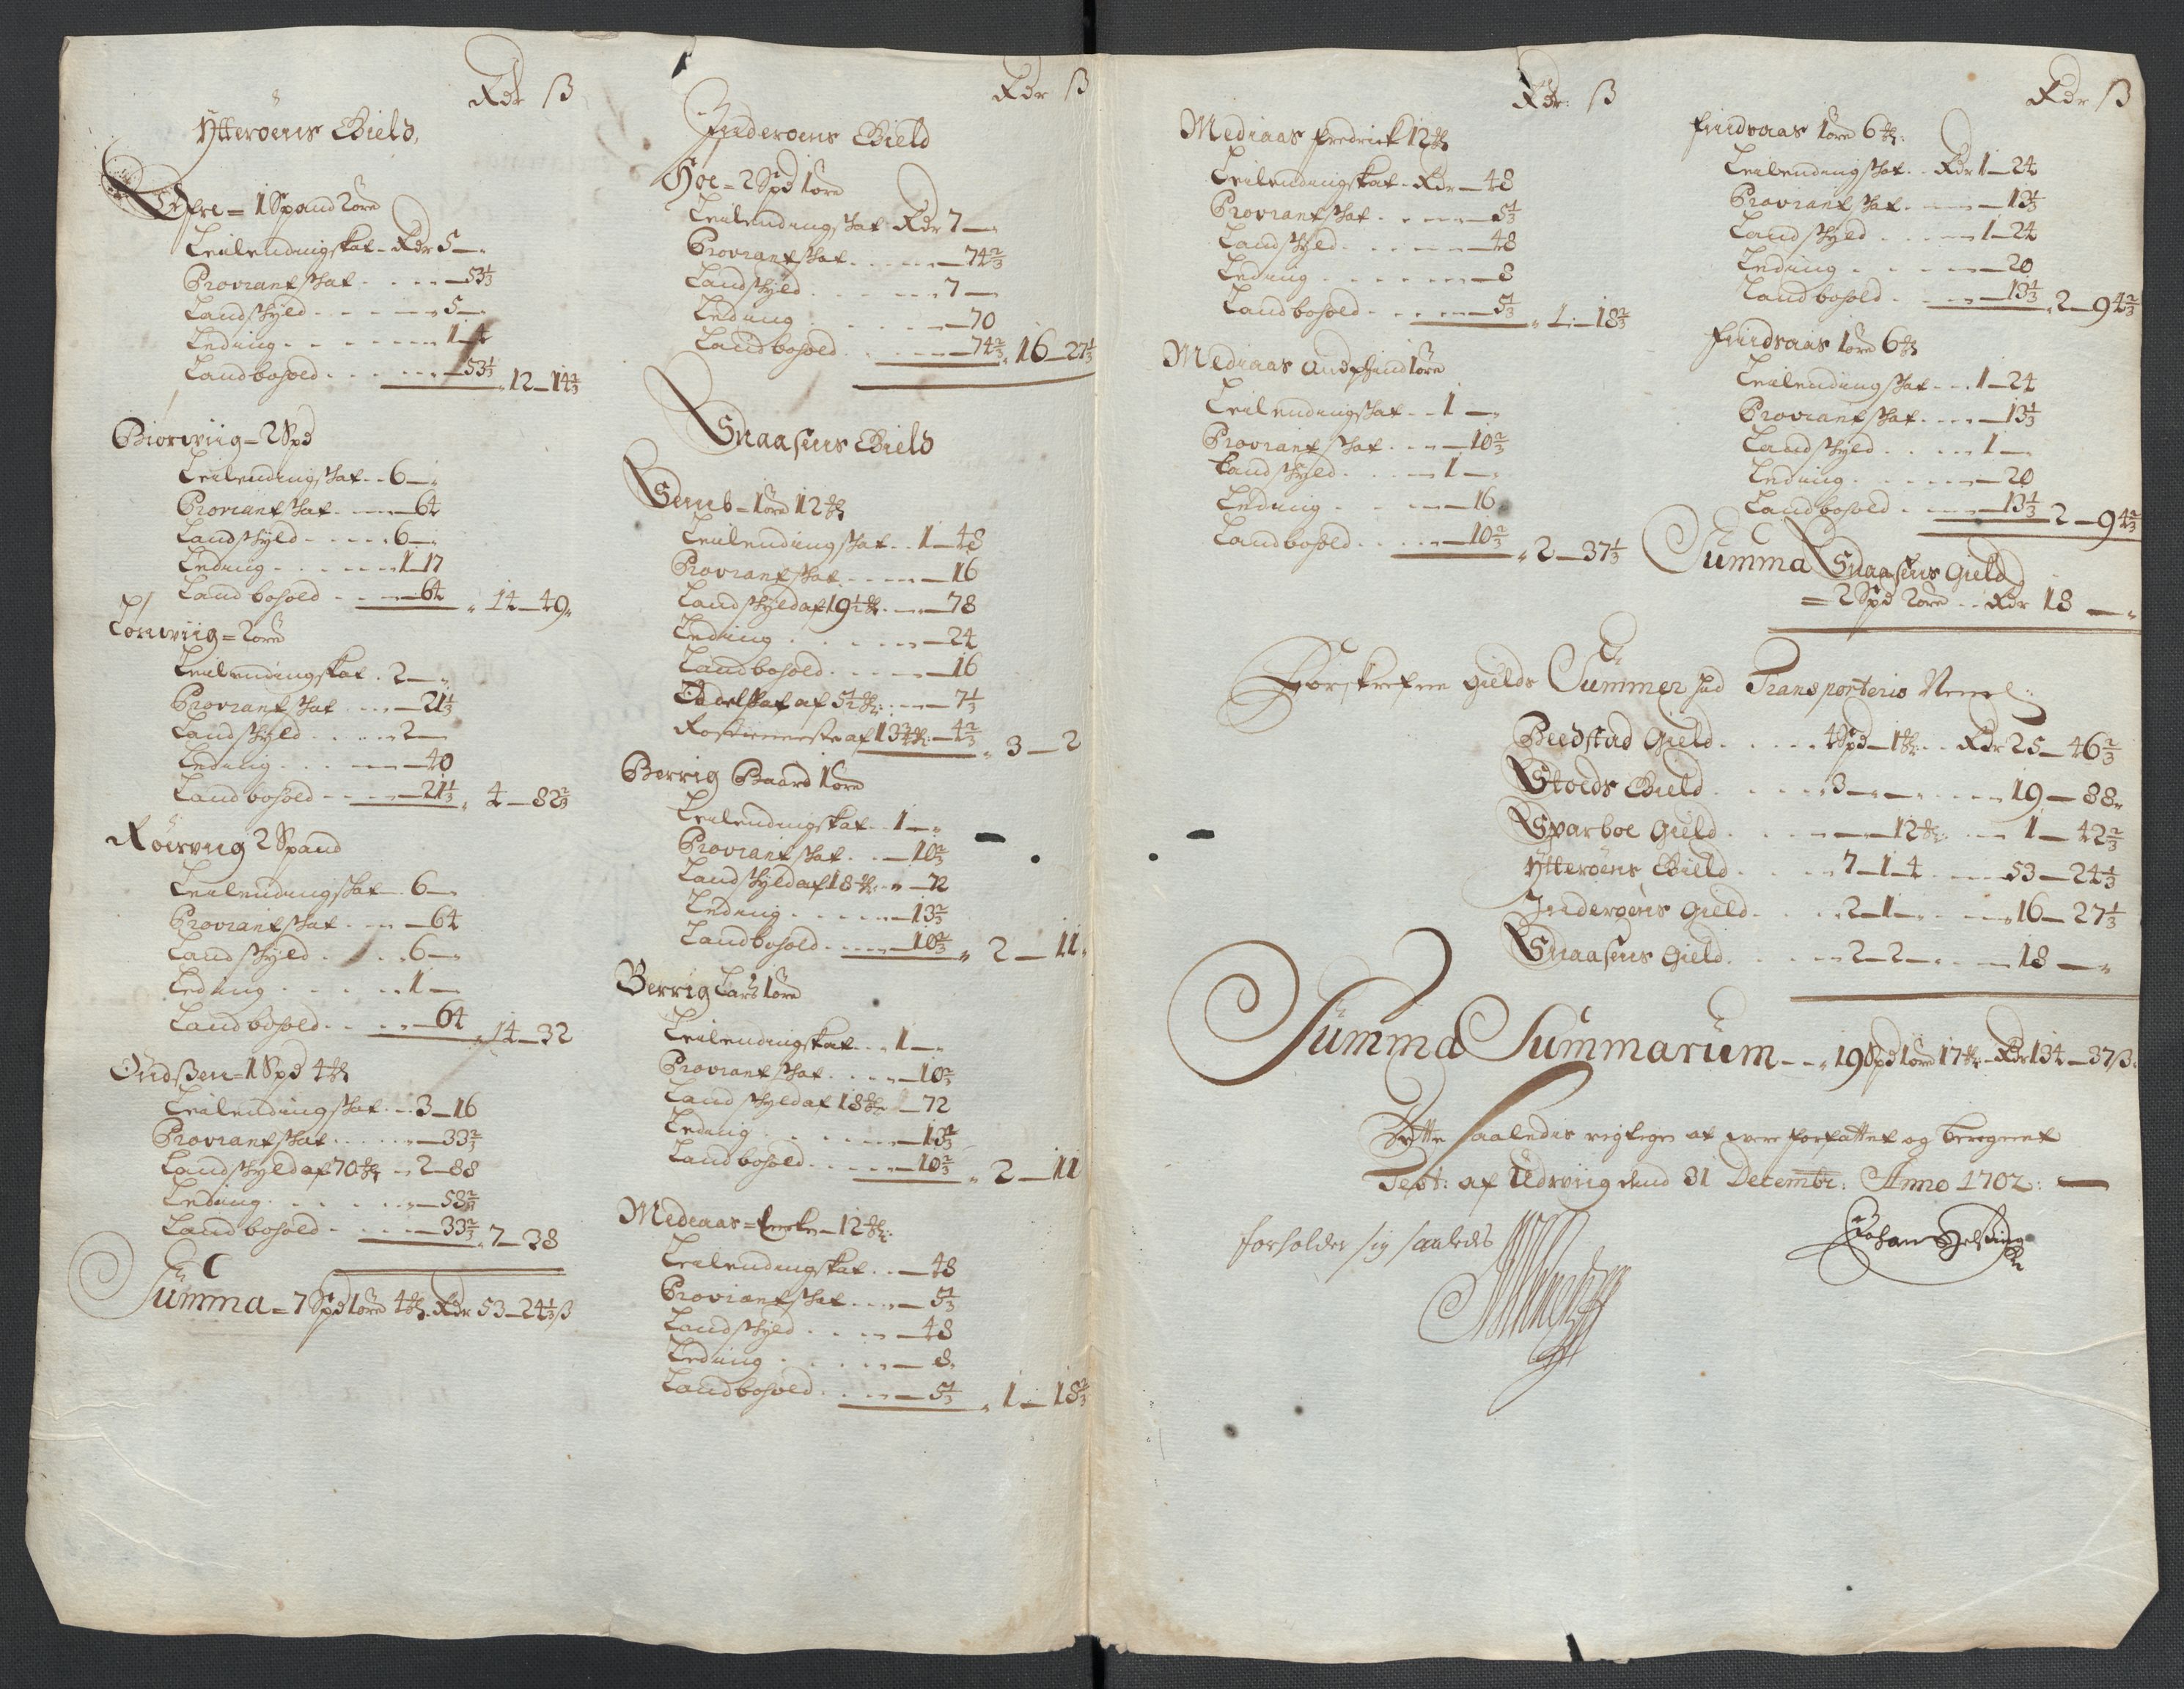 Rdr ß
Ytterøens Gield,
Tefre = 1 Spand 2 øre
Leilendingskat - Rdr 5 —
Proviantskat . . . . — 53 1/3
Landskyld - - - - - 5 —
Leding - - - - - - - 1 — 4
Landbohold . . . . . — 53 1/3 . 12 — 14 2/3
Biørviig = 2 Spd
Leilendingskat . . 6 — "
Proviantskat . ——— 64
Landskyld - - - - . 6 —
Leding - - - - - - 1 — 17
Landbohold - - - — 64 " 14 — 49 "
Lønviig = 2 øre
Leilendingskat . 2 — "
Proviantskat . . . — 21 1/3
Landskyld . . . . . 2 —
Leding . . . ——— 40
Landbohold - - - — 21 1/3 " 4 — 82 2/3
Røirviig 2 Spand
Leilendingskat . 6 —
Proviantskat . . — — 64
Landskyld . . . . . 6 — "
Leding . . . . . . 1 —
Landbohold . . . . — 64 " 14 — 32
Oudßen = 1 Spd 4 mkr
Leilendingskat . . . 3 — 16
Proviantskat . . . . . — 33 2/3
Landskyld af 70 mkr - 2 — 88
Leding . . . . . . — 58 2/3
Landbohold - . . . — 33 2/3 . 7 — 38
Summa = 7 Spd 1 øre 4 mkr. Rdr 53 — 24 1/3 ß
Rdr ß
Inderøens Gield
Hoe = 2 Spd 1 øre
Leilendingskat Rdr 7 — "
Proviantskat . . . . . — 74 2/3
Landskyld . . . . . . 7 —
Leding . . . . . . — 70
Landbohold . . . . — 74 2/3 . 16 — 27 1/3
Snaasens Gield
Semb = 1 øre 12 mkr
Leilendingskat . . 1 — 48
Proviantskat . . . . . — 16
Landskyld af 19 1/2 mkr. — 78
Leding . . . . . . — 24
Landbohold . . . . . — 16
Odelskat af 5 1/2 mkr: . . — 7 1/3
Rostienneste af 13 3/4 mkr: — 4 2/3 " 3 — 2
Berrig Baard 1 øre
Leilendingskat . . 1 — "
Proviantskat . . — 10 2/3
Landskyld af 18 mkr. " — 72
Leding . . . . . . — 13 2/3
Landbohold . . . . — 10 2/3 " 2 — 11 "
Berrig Lars 1 øre
Leilendingskat . . . 1 — "
Proviantskat . . . . — 10 2/3
Landskyld af 18 mkr — 72
Leding . . . . . . . — 13 2/3
Landbohold . . . . . — 10 2/3 " 2 — 11
Mediaas = — 12 mkr.
Leilendingskat . . — 48
Proviantskat . . . — 5 1/3
Landskyld . . . . — 48
Leding . . . . . — 8 "
Landbohold . . . — 5 1/3 " 1 — 18 2/3
Rdr: ß
Mediaas fredrick 12 mkr
Leilendingskat - Rdr — 48
Proviantskat . . . . . — 5 1/3
Landskyld . . . . . — 48
Leding . . . . . . . — 8
Landbohold . . . . — 5 1/3 " 1 — 18 2/3
Mediaas Andphind 1 øre
Leilendingskat . . 1 — "
Proviantskat . . . — 10 2/3
Landskyld . . . . — 1 — "
Leding . . . ——— 16
Landbohold . . . . — 10 2/3 " 2 — 37 1/3
Rdr ß
findsaas 1 øre 6 mkr:
Leilendingskat . . Rdr 1 — 24
Proviantskat . . . . — 13 1/3
Landskyld . . . . . 1 — 24
Leding . . . . — 20
Landbohold . . . — 13 1/3 . 2 — 94 2/3
findsaas 1 øre 6 mkr
Leilendingskat . . . 1 — 24
Proviantskat . . . . — 13 1/3
Landskyld . . . . . 1 —
Leding . . . . . — 20
Landbohold . . . — 13 1/3 2 — 94 2/3
Summa Snaasens Gield
= 2 Spd 2 øre . . Rdr 18 — "
Forskrefne gields Summer ad Transporteris Nemel:
Beedstad Gield . . . . . 4 Spd — 1 mkr: . . Rdr 25 — 46 2/3
Stoeds Gield . . . . . 3 — " — . . . . 19 — 88 "
Sparboe Gield . . . . . — — 12 mkr: . . — 1 — 42 2/3
Ytterøens Gield . . . . 7 — 1 — 4 . . . . 53 — 24 1/3
Inderøens Gield . . . . 2 — 1 — . . . . 16 — 27 1/3
Snaasens Gield . . . . . 2 — 2 — . . . — 18 — "
Summa Summarum - - " 19 Spd 1 øre 17 mkr. Rdr 134 — 37 ß:
Dette saaledis rigtigen at være forfattet og beregnet
Test: af Udviig dend 31 Decembr: Anno 1702: —
forholder sig saaledes
Johan Helsing